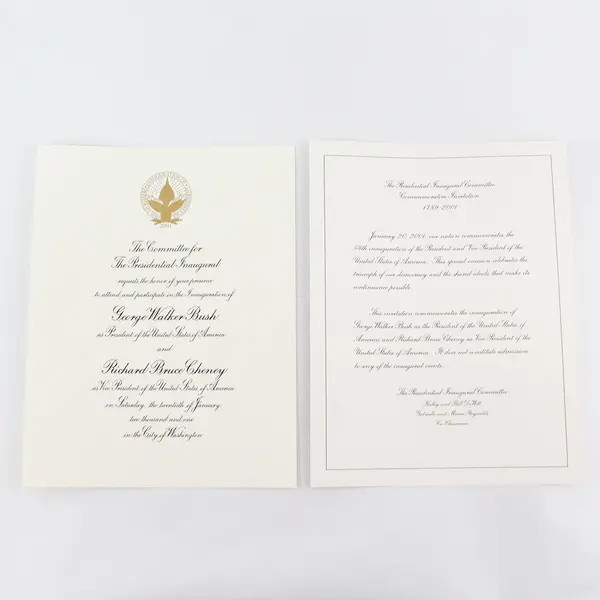 2001
The Committee for
The Presidential Inaugural
requests the honor of your presence
to attend and participate in the Inauguration of
George Walker Bush
as President of the United States of America
and
Richard Bruce Cheney
as Vice President of the United States of America
on Saturday, the twentieth of January
two thousand and one
in the City of Washington
The Presidential Inaugural Committee
Commemorative Invitation
1789-2001
January 20, 2001, our nation commemorates the
54th inauguration of the President and Vice President of the
United States of America. This special occasion celebrates the
triumph of our democracy and the shared ideals that make its
continuance possible.
This invitation commemorates the inauguration of
George Walker Bush as the President of the United States of
America and Richard Bruce Cheney as Vice President of the
United States of America. It does not constitute admission
to any of the inaugural events.
The Presidential Inaugural Committee
and Bill DeWitt
and Mercer Reynolds
Co-Chairmen